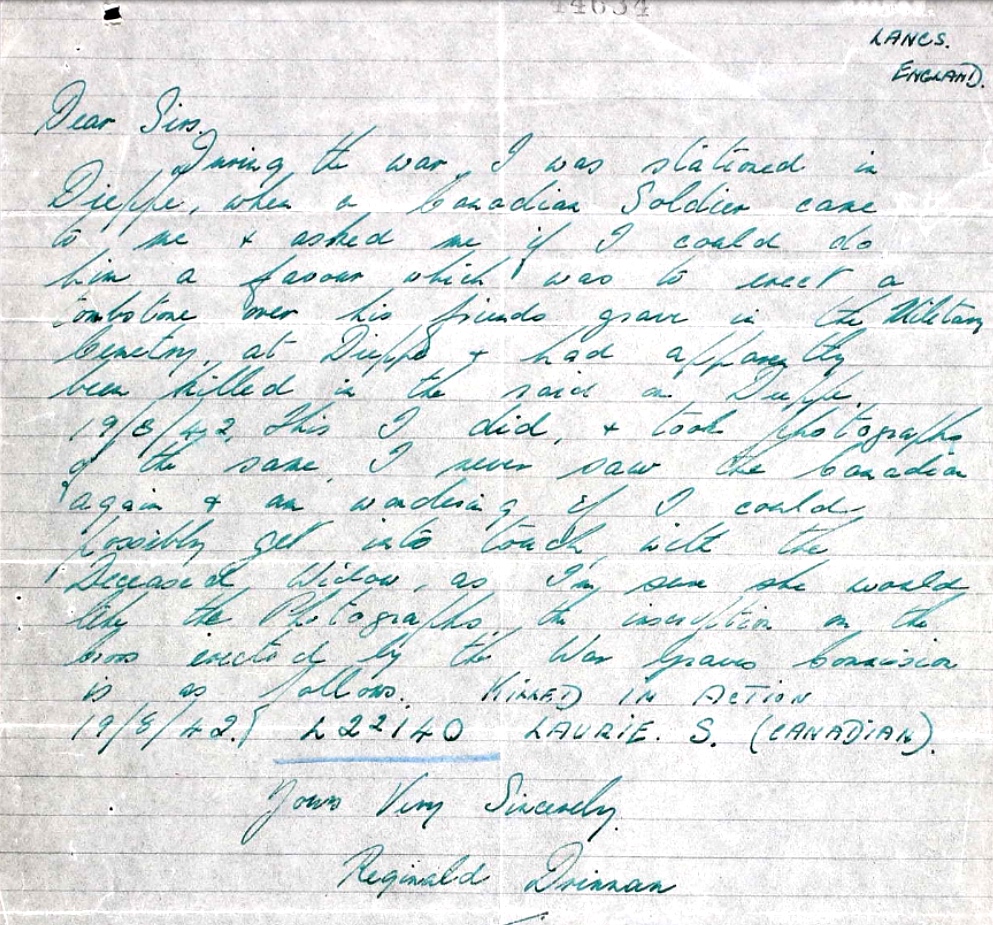 LANCS.
ENGLAND.
Dear Sirs,
During the war, I was stationed in
Dieppe, when a Canadian Soldier came
to me & asked me if I could do
him a favour which was to erect a
tombstone over his friends grave in the Military
Cemetry, at Dieppe & had apparently
been killed in the raid on Dieppe.
19/8/42. This I did, & took photographs
of the same, I never saw the Canadian
again & am wondering if I could
possibly get into touch with the
Deceased Widow, as I'm sure she would
like the Photographs, the inscription on the
Cross erected by the War Graves Commission
is as follows. KILLED IN ACTION
19/8/42. L22140 LAURIE. S. (CANADIAN).
Yours Very Sincerely
Reginald Drinnan